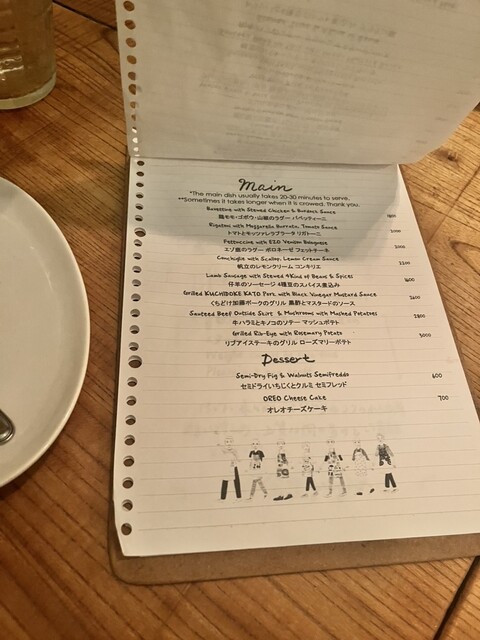 Main
*The main dish usually takes 20-30 minutes to serve.
**Sometimes it takes longer when it is crowed. Thank you.
with Stewed Chicken & Burdock Sauce
鶏モモ・ゴボウ・山椒のラグー パペッティーニ
Rigatoni with Mozzarella Burrata, Tomato Sauce
トマトとモッツァレラブラータ リガトーニ 2000
Fettuccine with EZO Venison Bolognese
エゾ鹿のラグー ボロネーゼ フェットチーネ 2000
Conchiglie with Scallop, Lemon Cream Sauce
帆立のレモンクリーム コンキリエ 2200
Lamb Sausage with Stewed 4Kind of Beans & Spices
仔羊のソーセージ 4種豆のスパイス煮込み 1600
Grilled KUCHIDOKE KATO Pork with Black Vinegar Mustard Sauce
くちどけ加藤ポークのグリル 黒酢とマスタードのソース 2600
Sauteed Beef Outside Skirt & Mushroom with Mashed Potatoes
牛ハラミとキノコのソテー マッシュポテト 2800
Grilled Rib-Eye with Rosemary Potato
リブアイステーキのグリル ローズマリーポテト 3000
Dessert
Semi-Dry Fig & Walnuts Semifreddo
セミドライいちじくとクルミ セミフレッド 600
OREO Cheese Cake
オレオチーズケーキ 700